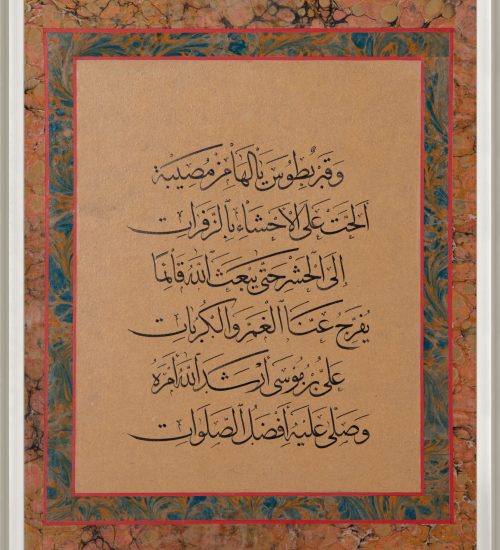 وَقَبْرٌ بِطُوسَ يَا لَهَا مِنْ مُصِيبَةٍ
أَلَحَّتْ عَلَى الْأَحْشَاءِ بِالزَّفَرَاتِ
إِلَى الْحَشْرِ حَتَّى يَبْعَثَ اللهُ قَائِمًا
يُفَرِّجُ عَنَّا الْغَمَّ وَالْكُرُبَاتِ
عَلِيُّ بْنُ مُوسَى أَرْشَدَ اللهُ أَمْرَهُ
وَصَلَّى عَلَيْهِ أَفْضَلَ الصَّلَوَاتِ